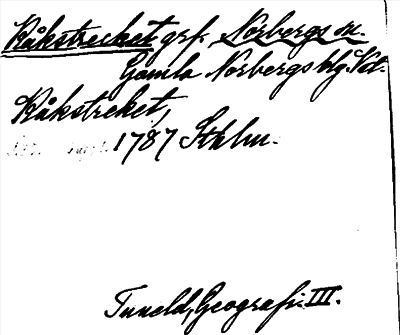 Råkstrecket grf. Norbergs sn.
Gamla Norbergs blg. Vstm.
Råkstreket,
1787 Sthlm.
Tuneld, Geografi. III.